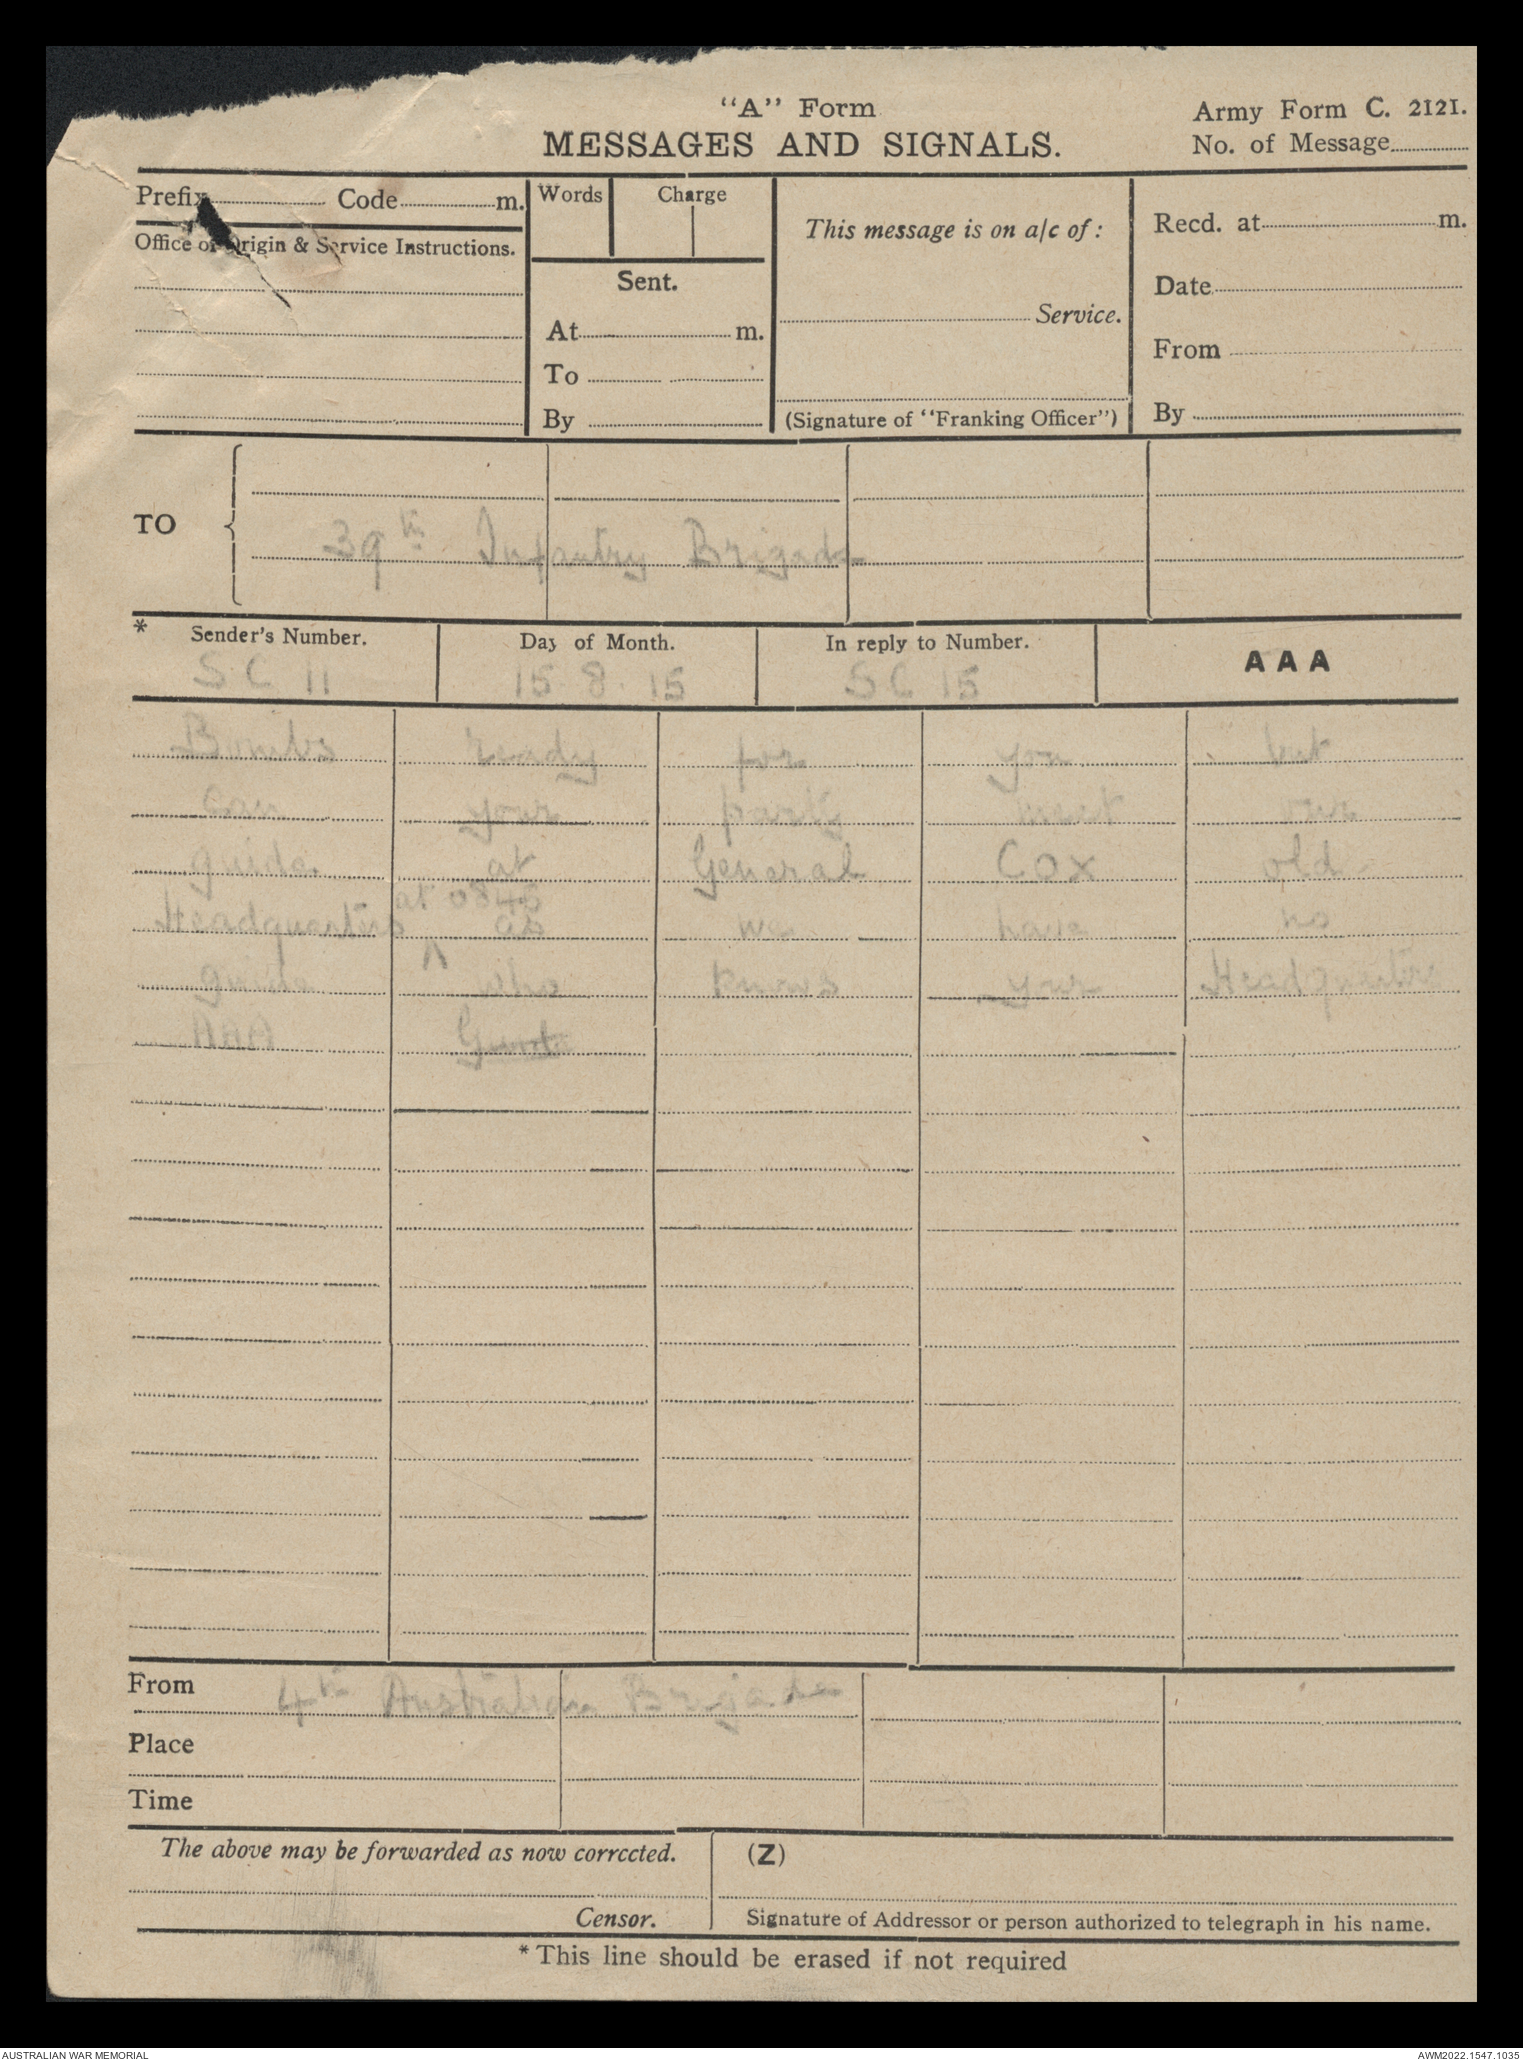 "A" Form
Army Form C. 2121.
MESSAGES AND SIGNALS.
No. of Message
Prefix Code m.
Words Charge
This message is on a/c of :
Recd. at m.
Office of Origin & Service Instructions.
Sent.
Date
At m.
Service.
From
To
By
(Signature of "Franking Officer")
By
TO
39th Infantry Brigade
* Sender's Number. Day of Month. In reply to Number. AAA
SC 11 15 8. 15 SC 15
Bombs ready for you but
can your party meet our
guide at General COX old
at 0845
Headquarters as we have no
guide who knows your Headquarters
AAA
From 4th Australian Brigade
Place
Time
The above may be forwarded as now corrected. (Z)
Censor. Signature of Addressor or person authorized to telegraph in his name.
* This line should be erased if not required
AUSTRALIAN WAR MEMORIAL AWM2022.1547.1035